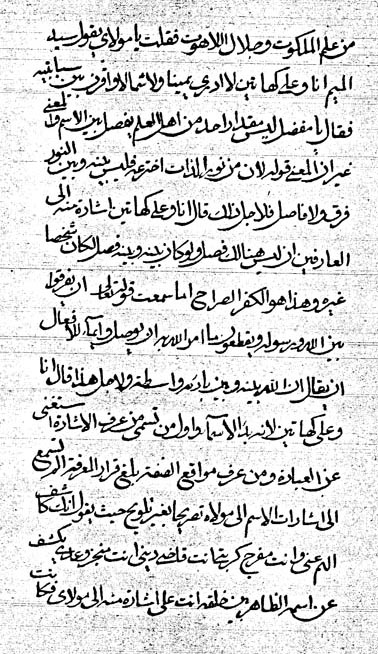 من علم الملكوت وجلال اللاهوت فقلت يا مولاي يقول سيد
الميم انا وعلي كهاتين لا ادري يمينا ولا شمالا واقرن بين سبابتيه
فقال يا مفضل ليس يقدر احد من اهل العلم يفصل بين الاسم والمعنى
غير ان المعنى فوقه لان من نور الذات اخترعه فليس بينه وبين النور
فرق ولا فاصل فلاجل ذلك قال انا وعلي كهاتين اشارة منه الى
العارفين ان ليس هنالك فصل ولو كان بينه وبينه فصل لكان شخصا
غيره وهذا هو الكفر الصراح اما سمعت قوله تعالى ان يفرقوا
بين الله ورسوله ويقطعون ما امر الله به ان يوصل
ان يقال ان الله بينه وبين بارئه واسطة ولاجل هذا قال انا
وعلي كهاتين لانه بدء الاسماء واول من تسمى من عرف الاشارة استغنى
عن العبادة ومن عرف مواقع الصفة بلغ قرار المعرفة الم تسمع
الى اشارات الاسم الى مولاه تصريحا بغير تلويح حيث يقول انك كاشف
الهم عني وانت مفرج كربتي انت قاضي ديني انت منجز وعدي يكشف
عن اسمه الظاهر بين خلقه انت علي اشارة منه الى مولاه فكانت